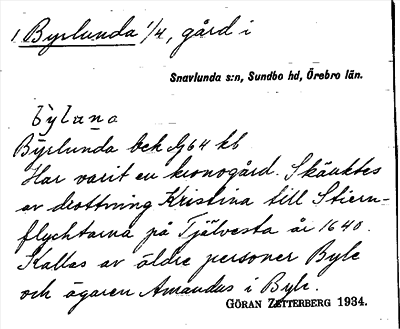 1 Byrlunda 1/4, gård i
Snavlunda s:n, Sundbo hd, Örebro län.
Byrlunda bek. G 64 kb
Har varit en kronogård. Skänktes
av drottning Kristina till Stiern-
flychtarna på Tjälvesta år 1640.
Kallas av äldre personer Byle
och ägaren Amandus i Byle.
GÖRAN ZETTERBERG 1934.